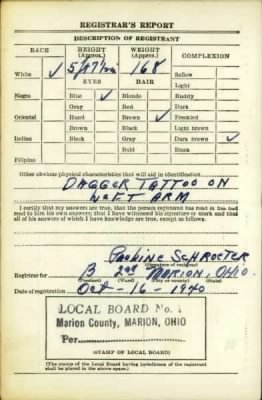 REGISTRAR'S REPORT
DESCRIPTION OF REGISTRANT
RACE HEIGHT (Approx.) WEIGHT (Approx.) COMPLEXION
White ✓ 5 ft 7½ in 168 Sallow
EYES HAIR Light
Negro Blue ✓ Blonde Ruddy
Gray Red Dark
Oriental Hazel Brown ✓ Freckled
Brown Black Light brown
Indian Black Gray Dark brown ✓
Bald Black
Filipino
Other obvious physical characteristics that will aid in identification
DAGGER TATTOO ON
LEFT ARM
I certify that my answers are true; that the person registered has read or has had
read to him his own answers; that I have witnessed his signature or mark and that
all of his answers of which I have knowledge are true, except as follows:
Pauline Schroeter
(Signature of registrar)
Registrar for B 2nd MARION, OHIO
(Precinct) (Ward) (City or county) (State)
Date of registration Oct-16-1940
LOCAL BOARD No. 1
Marion County, MARION, OHIO
Per
(STAMP OF LOCAL BOARD)
(The stamp of the Local Board having jurisdiction of the registrant
shall be placed in the above space.)